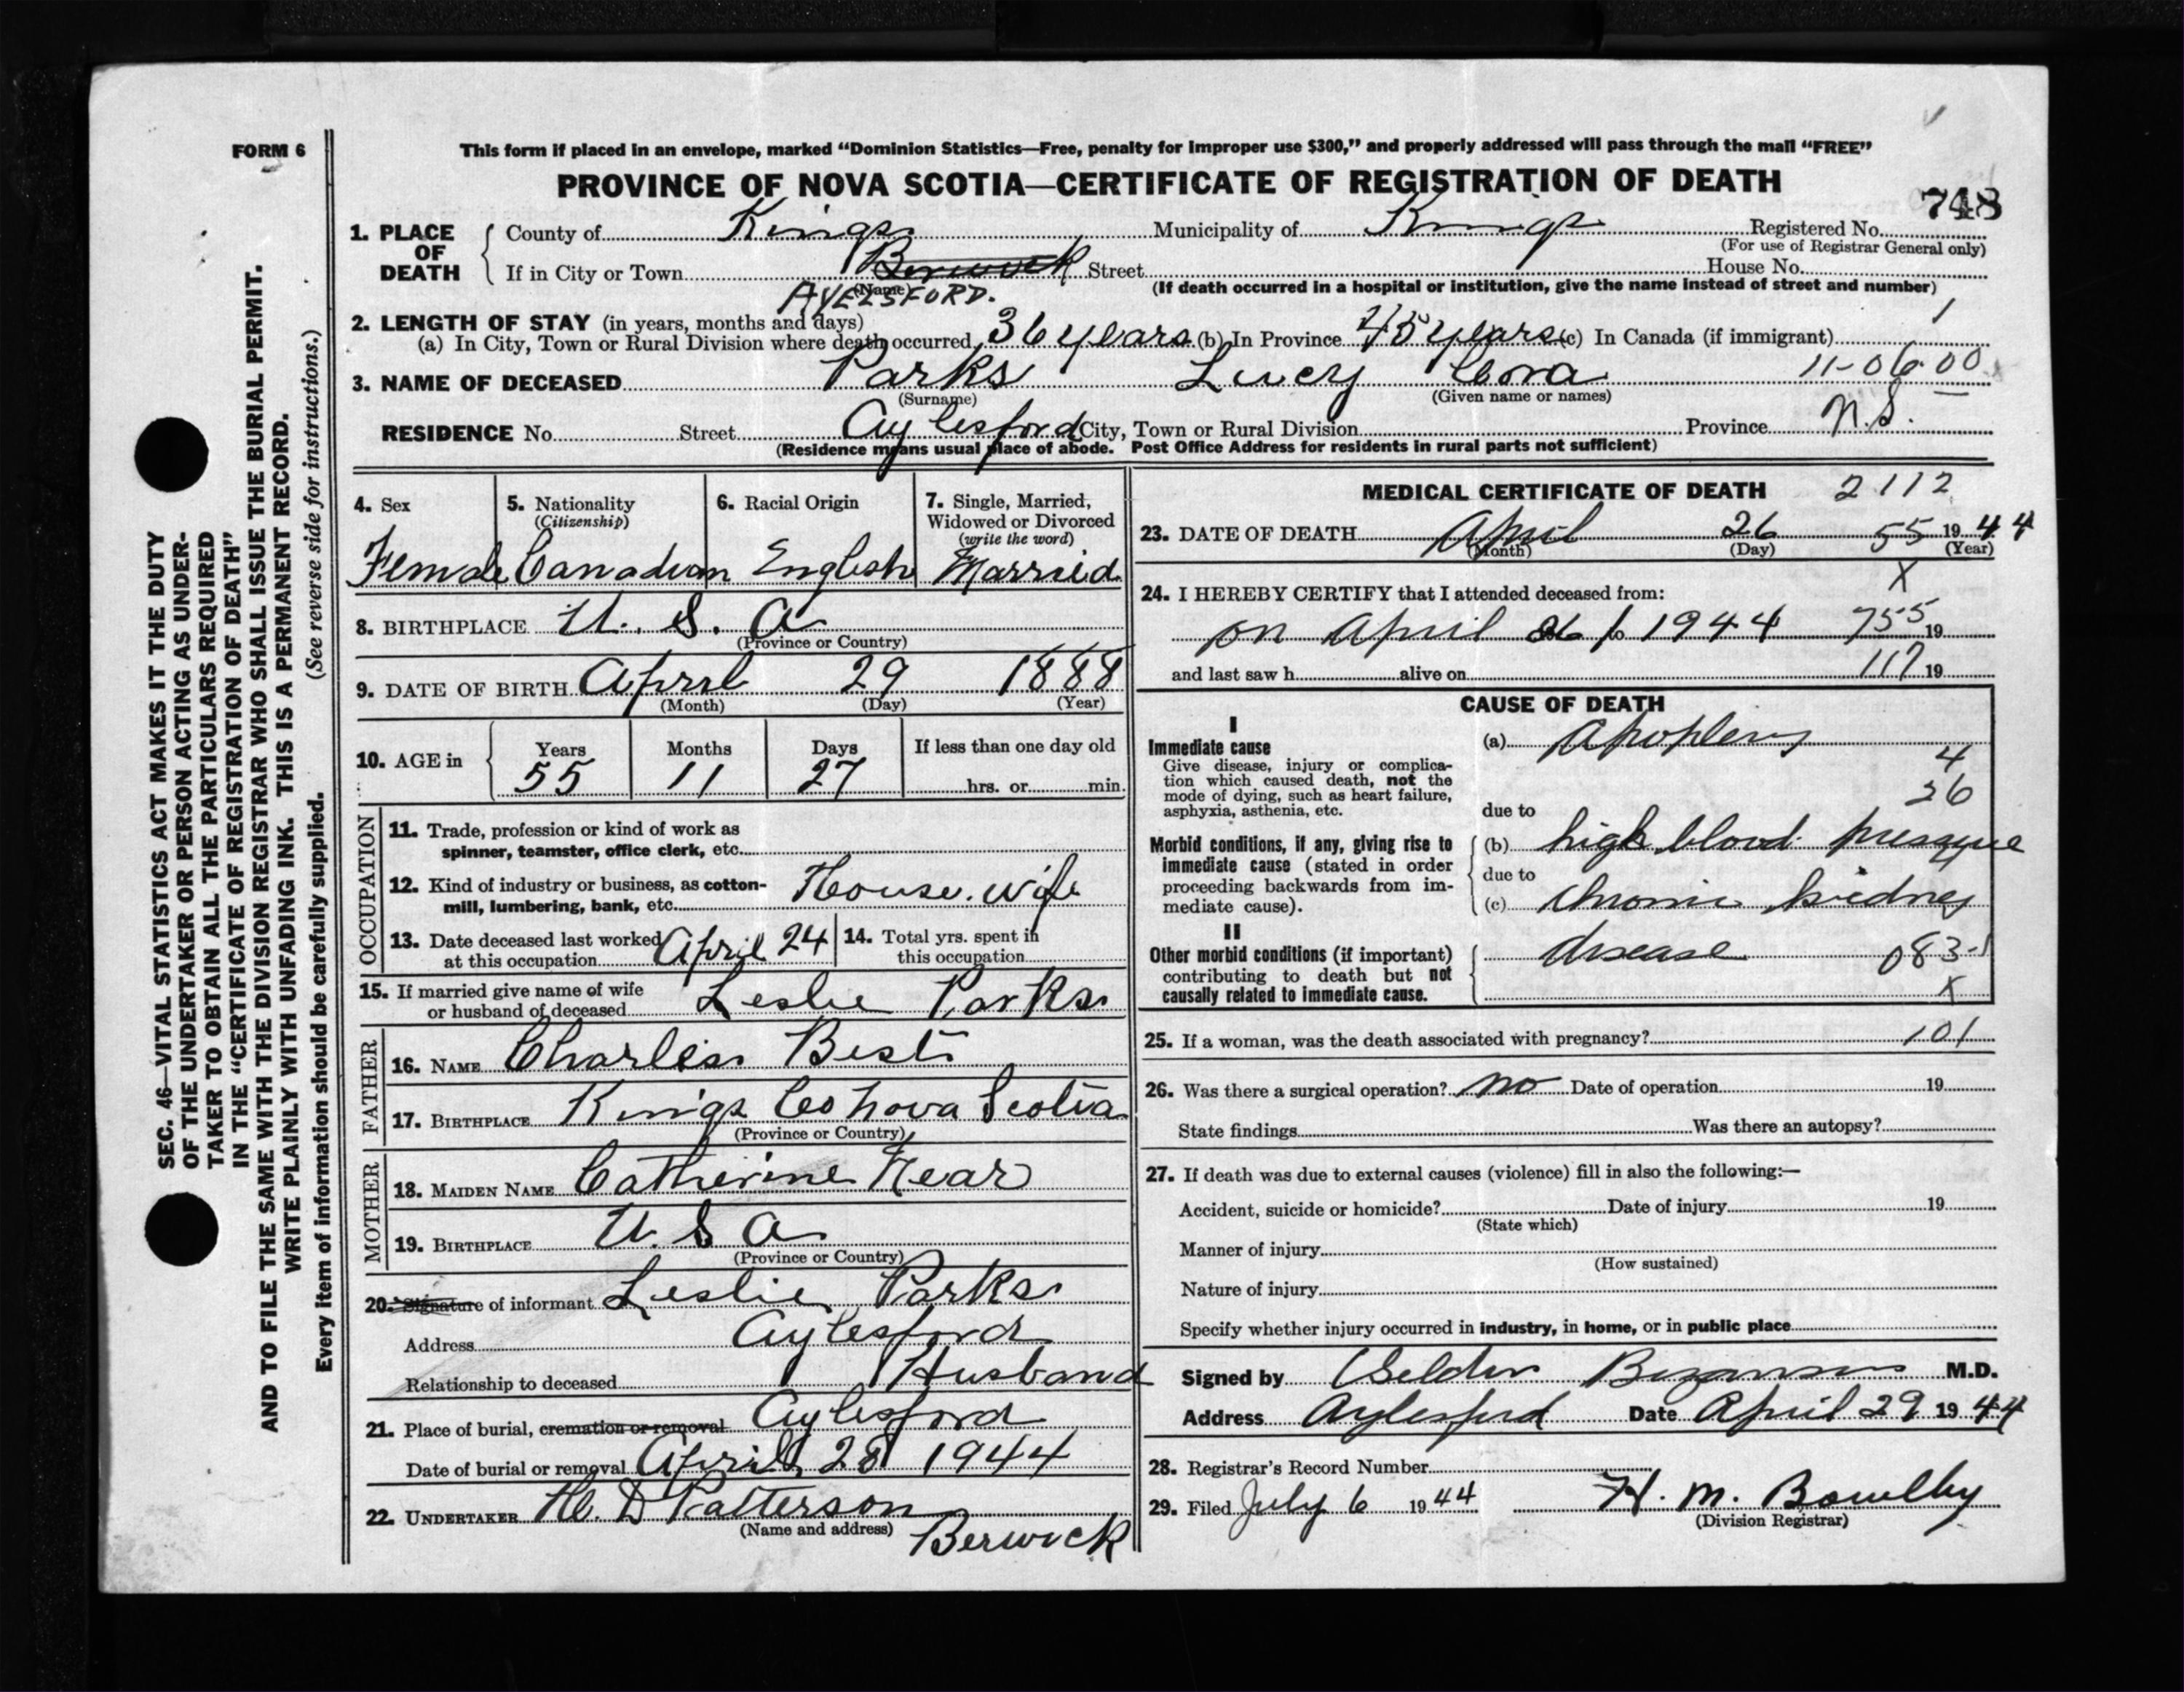 FORM 6
This form if placed in an envelope, marked “Dominion Statistics—Free, penalty for improper use $300,” and properly addressed will pass through the mail “FREE”
PROVINCE OF NOVA SCOTIA—CERTIFICATE OF REGISTRATION OF DEATH
748
1. PLACE OF DEATH
County of Kings Municipality of Kings Registered No.
(For use of Registrar General only)
If in City or Town Berwick Street House No.
(Name) (If death occurred in a hospital or institution, give the name instead of street and number)
AYELSFORD.
2. LENGTH OF STAY (in years, months and days)
(a) In City, Town or Rural Division where death occurred 36 years (b) In Province 45 years (c) In Canada (if immigrant) 1
3. NAME OF DECEASED Parks Lucy Cora 11-06-00
(Surname) (Given name or names)
RESIDENCE No. Street Aylesford City, Town or Rural Division Province N.S.
(Residence means usual place of abode. Post Office Address for residents in rural parts not sufficient)
4. Sex
Female
5. Nationality
(Citizenship)
Canadian
6. Racial Origin
English
7. Single, Married,
Widowed or Divorced
(write the word)
Married
8. BIRTHPLACE U. S. A
(Province or Country)
9. DATE OF BIRTH April 29 1888
(Month) (Day) (Year)
10. AGE in
Years Months Days If less than one day old
55 11 27 hrs. or min.
OCCUPATION
11. Trade, profession or kind of work as
spinner, teamster, office clerk, etc.
12. Kind of industry or business, as cotton-
mill, lumbering, bank, etc. House. wife
13. Date deceased last worked
at this occupation April 24
14. Total yrs. spent in
this occupation
15. If married give name of wife
or husband of deceased Leslie Parks
FATHER
16. NAME Charles Best
17. BIRTHPLACE Kings Co Nova Scotia
(Province or Country)
MOTHER
18. MAIDEN NAME Catherine Near
19. BIRTHPLACE U. S A
(Province or Country)
20. Signature of informant Leslie Parks
Address Aylesford
Relationship to deceased Husband
21. Place of burial, cremation or removal Aylesford
Date of burial or removal April 28 1944
22. UNDERTAKER D Patterson
(Name and address) Berwick
MEDICAL CERTIFICATE OF DEATH 2112
23. DATE OF DEATH April 26 55 1944
(Month) (Day) (Year)
X
24. I HEREBY CERTIFY that I attended deceased from:
on April 26 to 1944 755 19
and last saw h alive on 117 19
CAUSE OF DEATH
I
Immediate cause
Give disease, injury or complica-
tion which caused death, not the
mode of dying, such as heart failure,
asphyxia, asthenia, etc.
(a) Apoplexy
4
26
due to
Morbid conditions, if any, giving rise to
immediate cause (stated in order
proceeding backwards from im-
mediate cause).
(b) high blood pressure
due to
(c) chronic kidney
II
Other morbid conditions (if important)
contributing to death but not
causally related to immediate cause.
disease 083-1
X
25. If a woman, was the death associated with pregnancy? 101
26. Was there a surgical operation? no Date of operation 19
State findings Was there an autopsy?
27. If death was due to external causes (violence) fill in also the following:—
Accident, suicide or homicide? Date of injury 19
(State which)
Manner of injury
(How sustained)
Nature of injury
Specify whether injury occurred in industry, in home, or in public place
Signed by M.D.
Address Aylesford Date April 29 1944
28. Registrar's Record Number
29. Filed July 6 1944 H. M. Bowlby
(Division Registrar)
SEC. 46—VITAL STATISTICS ACT MAKES IT THE DUTY
OF THE UNDERTAKER OR PERSON ACTING AS UNDER-
TAKER TO OBTAIN ALL THE PARTICULARS REQUIRED
IN THE “CERTIFICATE OF REGISTRATION OF DEATH”
AND TO FILE THE SAME WITH THE DIVISION REGISTRAR WHO SHALL ISSUE THE BURIAL PERMIT.
WRITE PLAINLY WITH UNFADING INK. THIS IS A PERMANENT RECORD.
Every item of information should be carefully supplied. (See reverse side for instructions.)